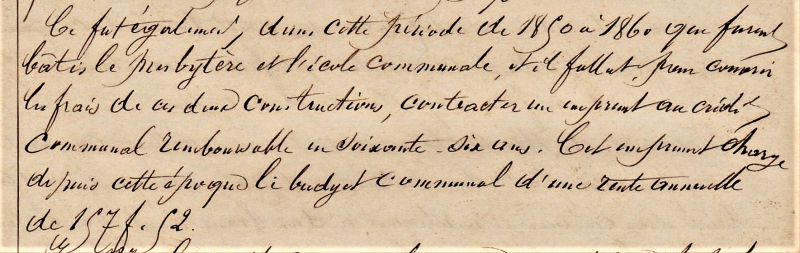 Ce fut également, dans cette période de 1850 à 1860 que furent
bâtis le presbytère et l'école communale, et il fallut, pour couvrir
les frais de ces deux constructions, contracter un emprunt au crédit
communal remboursable en soixante-six ans. Cet emprunt charge
depuis cette époque le budget communal d'une rente annuelle
de 157f.52.